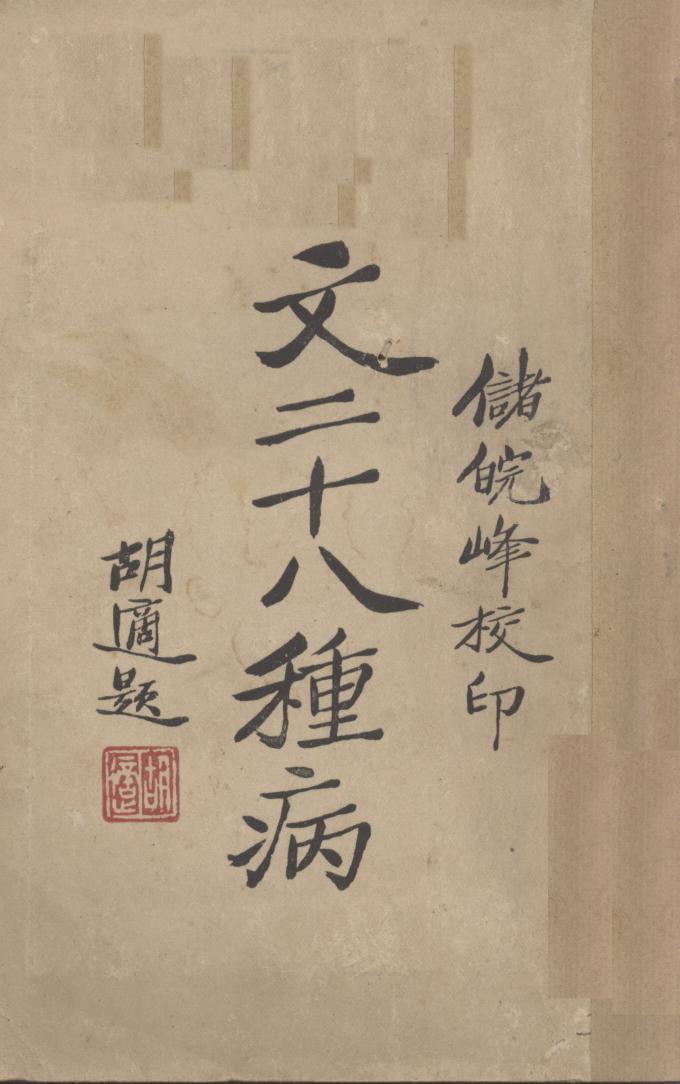 儲皖峰校印
文二十八種病
胡適題
胡適